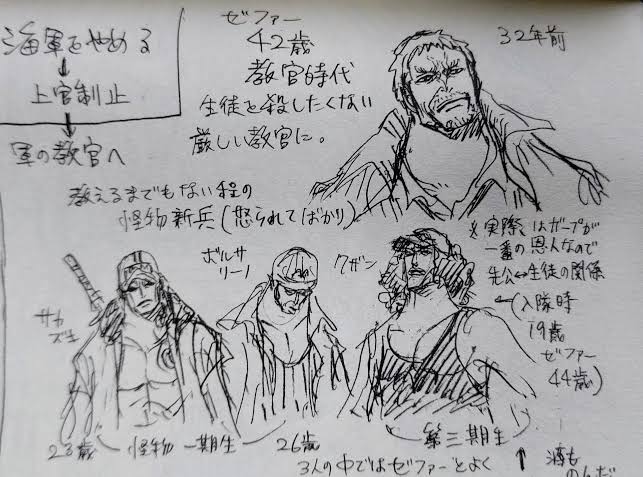 海軍をやめる
↓
上官制止
↓
軍の教官へ
ゼファー
42歳
教官時代
生徒を殺したくない
厳しい教官に。
32年前
教えるまでもない程の
怪物新兵(怒られてばかり)
サカズキ
ボルサ
リーノ
クザン
※実際はガープが
一番の恩人なので
先公↔生徒の関係
←(入隊時
19歳
ゼファー
44歳)
23歳
怪物一期生
26歳
第三期生
3人の中ではゼファーとよく
↑
酒も
のんだ